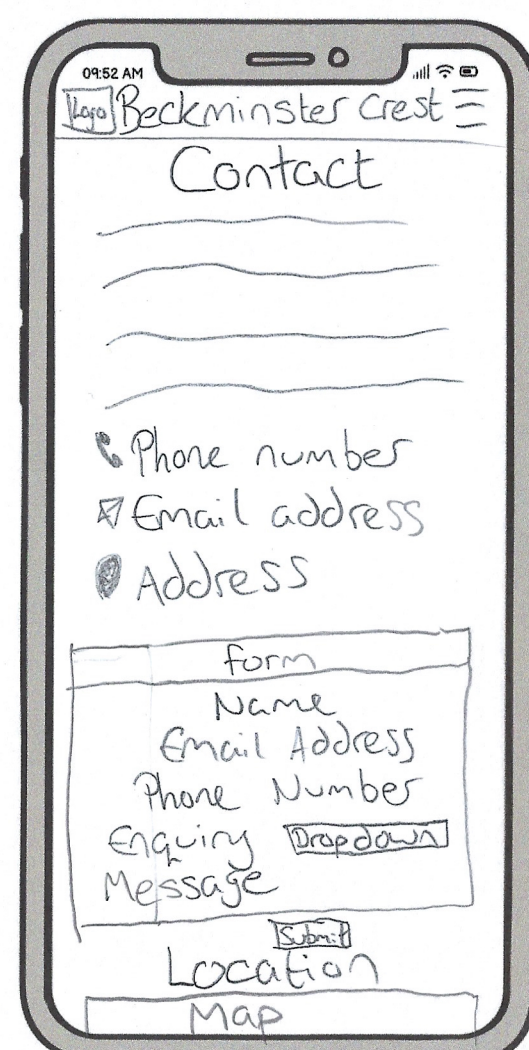 09:52 AM
Logo Beckminster Crest
Contact
Phone number
Email address
Address
form
Name
Email Address
Phone Number
Enquiry Dropdown
Message
Submit
Location
Map